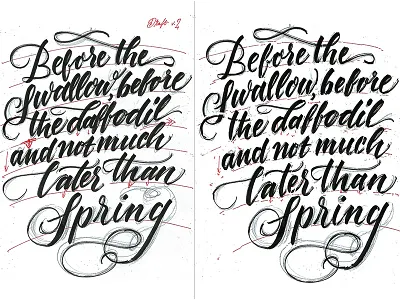 Draft v.2
Before the
Swallow, before
the daffodil
and not much
later than
Spring
Before the
Swallow, before
the daffodil
and not much
later than
Spring